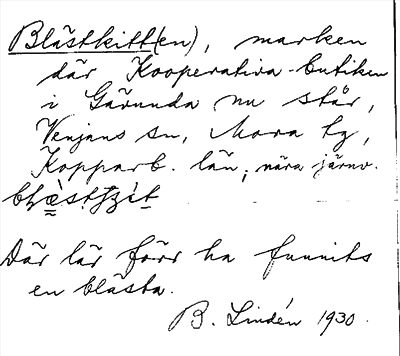 Blästkitt(en), marken
där Kooperativa-butiken
i Gävunda nu står,
Venjans sn, Mora tg,
Kopparb. län; nära järnv.
Där lär förr ha funnits
en blästa.
B. Lindén 1930.